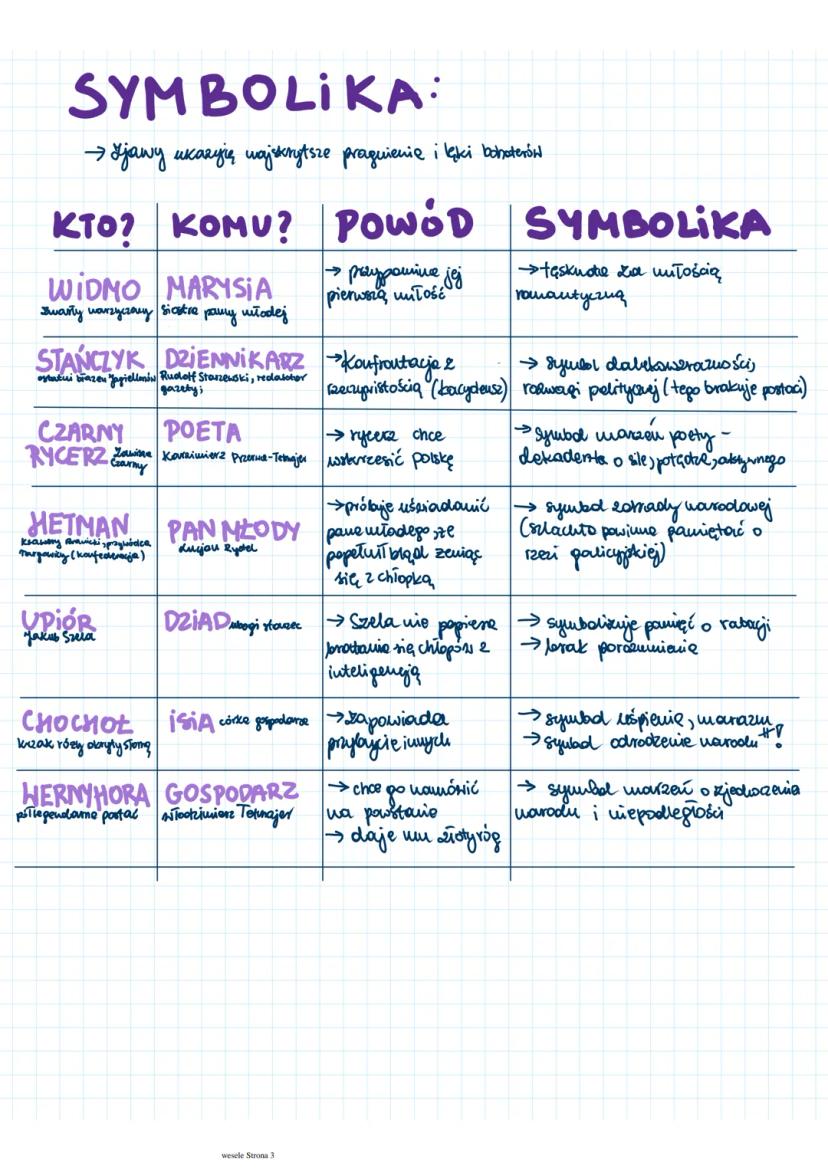 SYMBOLIKA:
→ zjawy ukazują najskrytsze pragnienia i lęki bohaterów
KTO? KOMU? POWÓD SYMBOLIKA
WIDMO
zmarły narzyczony
MARYSIA
siostra panny młodej
→ przypomina jej
pierwszą miłość
→ tęsknota za miłością
romantyczną
STAŃCZYK
ostatni błazen Jagiellonów
DZIENNIKARZ
Rudolf Starzewski, redaktor
gazety;
→ Konfrontacja z
rzeczywistością
→ symbol dalekowzroczności,
rozwagi politycznej (tego brakuje postaci)
CZARNY
RYCERZ Zawisza
Czarny
POETA
Kazimierz Przerwa-Tetmajer
→ rycerz chce
wskrzesić polskę
→ symbol marzeń poety -
dekadenta o sile, potędze, aktywnego
HETMAN
Ksawery Branicki, przywódca
Targowicy (konfederacja)
PAN MŁODY
Lucjan Rydel
→ próbuje uświadomić
pana młodego, że
popełnił błąd żeniąc
się z chłopką
→ symbol zdrady narodowej
(szlachta powinna pamiętać o
rzezi galicyjskiej)
UPIÓR
Jakub Szela
DZIAD ubogi starzec
→ Szela nie popiera
bratania się chłopów z
inteligencją
→ symbolizuje pamięć o rabacji
→ brak porozumienia
CHOCHOŁ
krzak róży okryty słomą
ISIA córka gospodarza
→ zapowiada
przybycie innych
→ symbol uśpienia, marazmu
→ symbol odrodzenia narodu !
WERNYHORA
półlegendarna postać
GOSPODARZ
Włodzimierz Tetmajer
→ chce go namówić
na powstanie
→ daje mu złoty róg
→ symbol marzeń o zjednoczeniu
narodu i niepodległości
wesele Strona 3